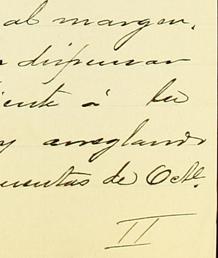 al margen.
dispensar
iente á la
y arreglando
uentas de Octe.
II